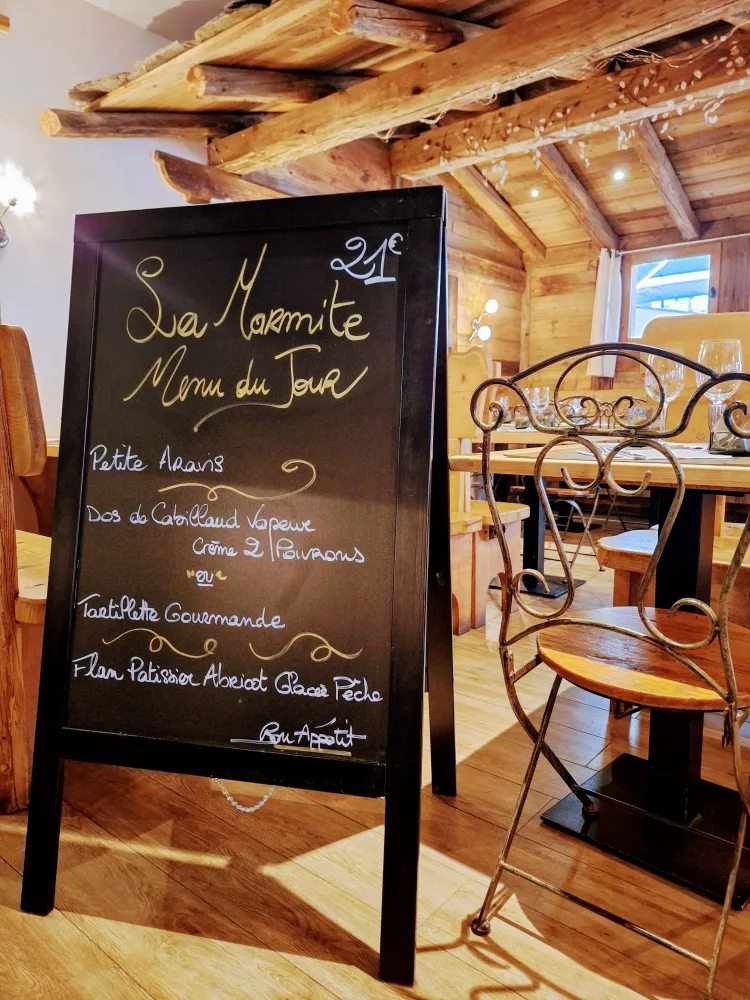 21€
La Marmite
Menu du Jour
Petite Aravis
Dos de Cabillaud Vapeur
Crème 2 Poivrons
"ou"
Tartiflette Gourmande
Flan Patissier Abricot Glace Pêche
Bon Appétit